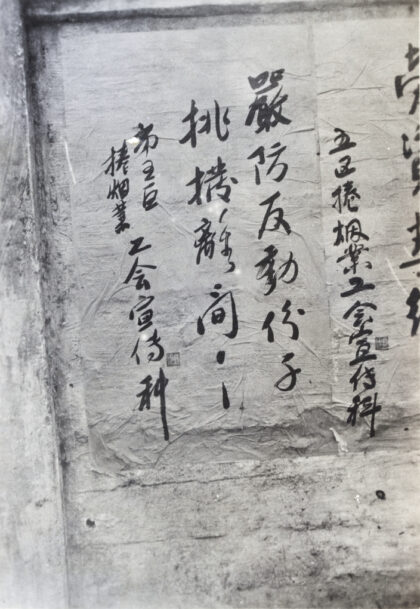 五区捲烟業工会宣传科
嚴防反動份子
挑撥離間！！
第五区
捲烟業
工会宣传科